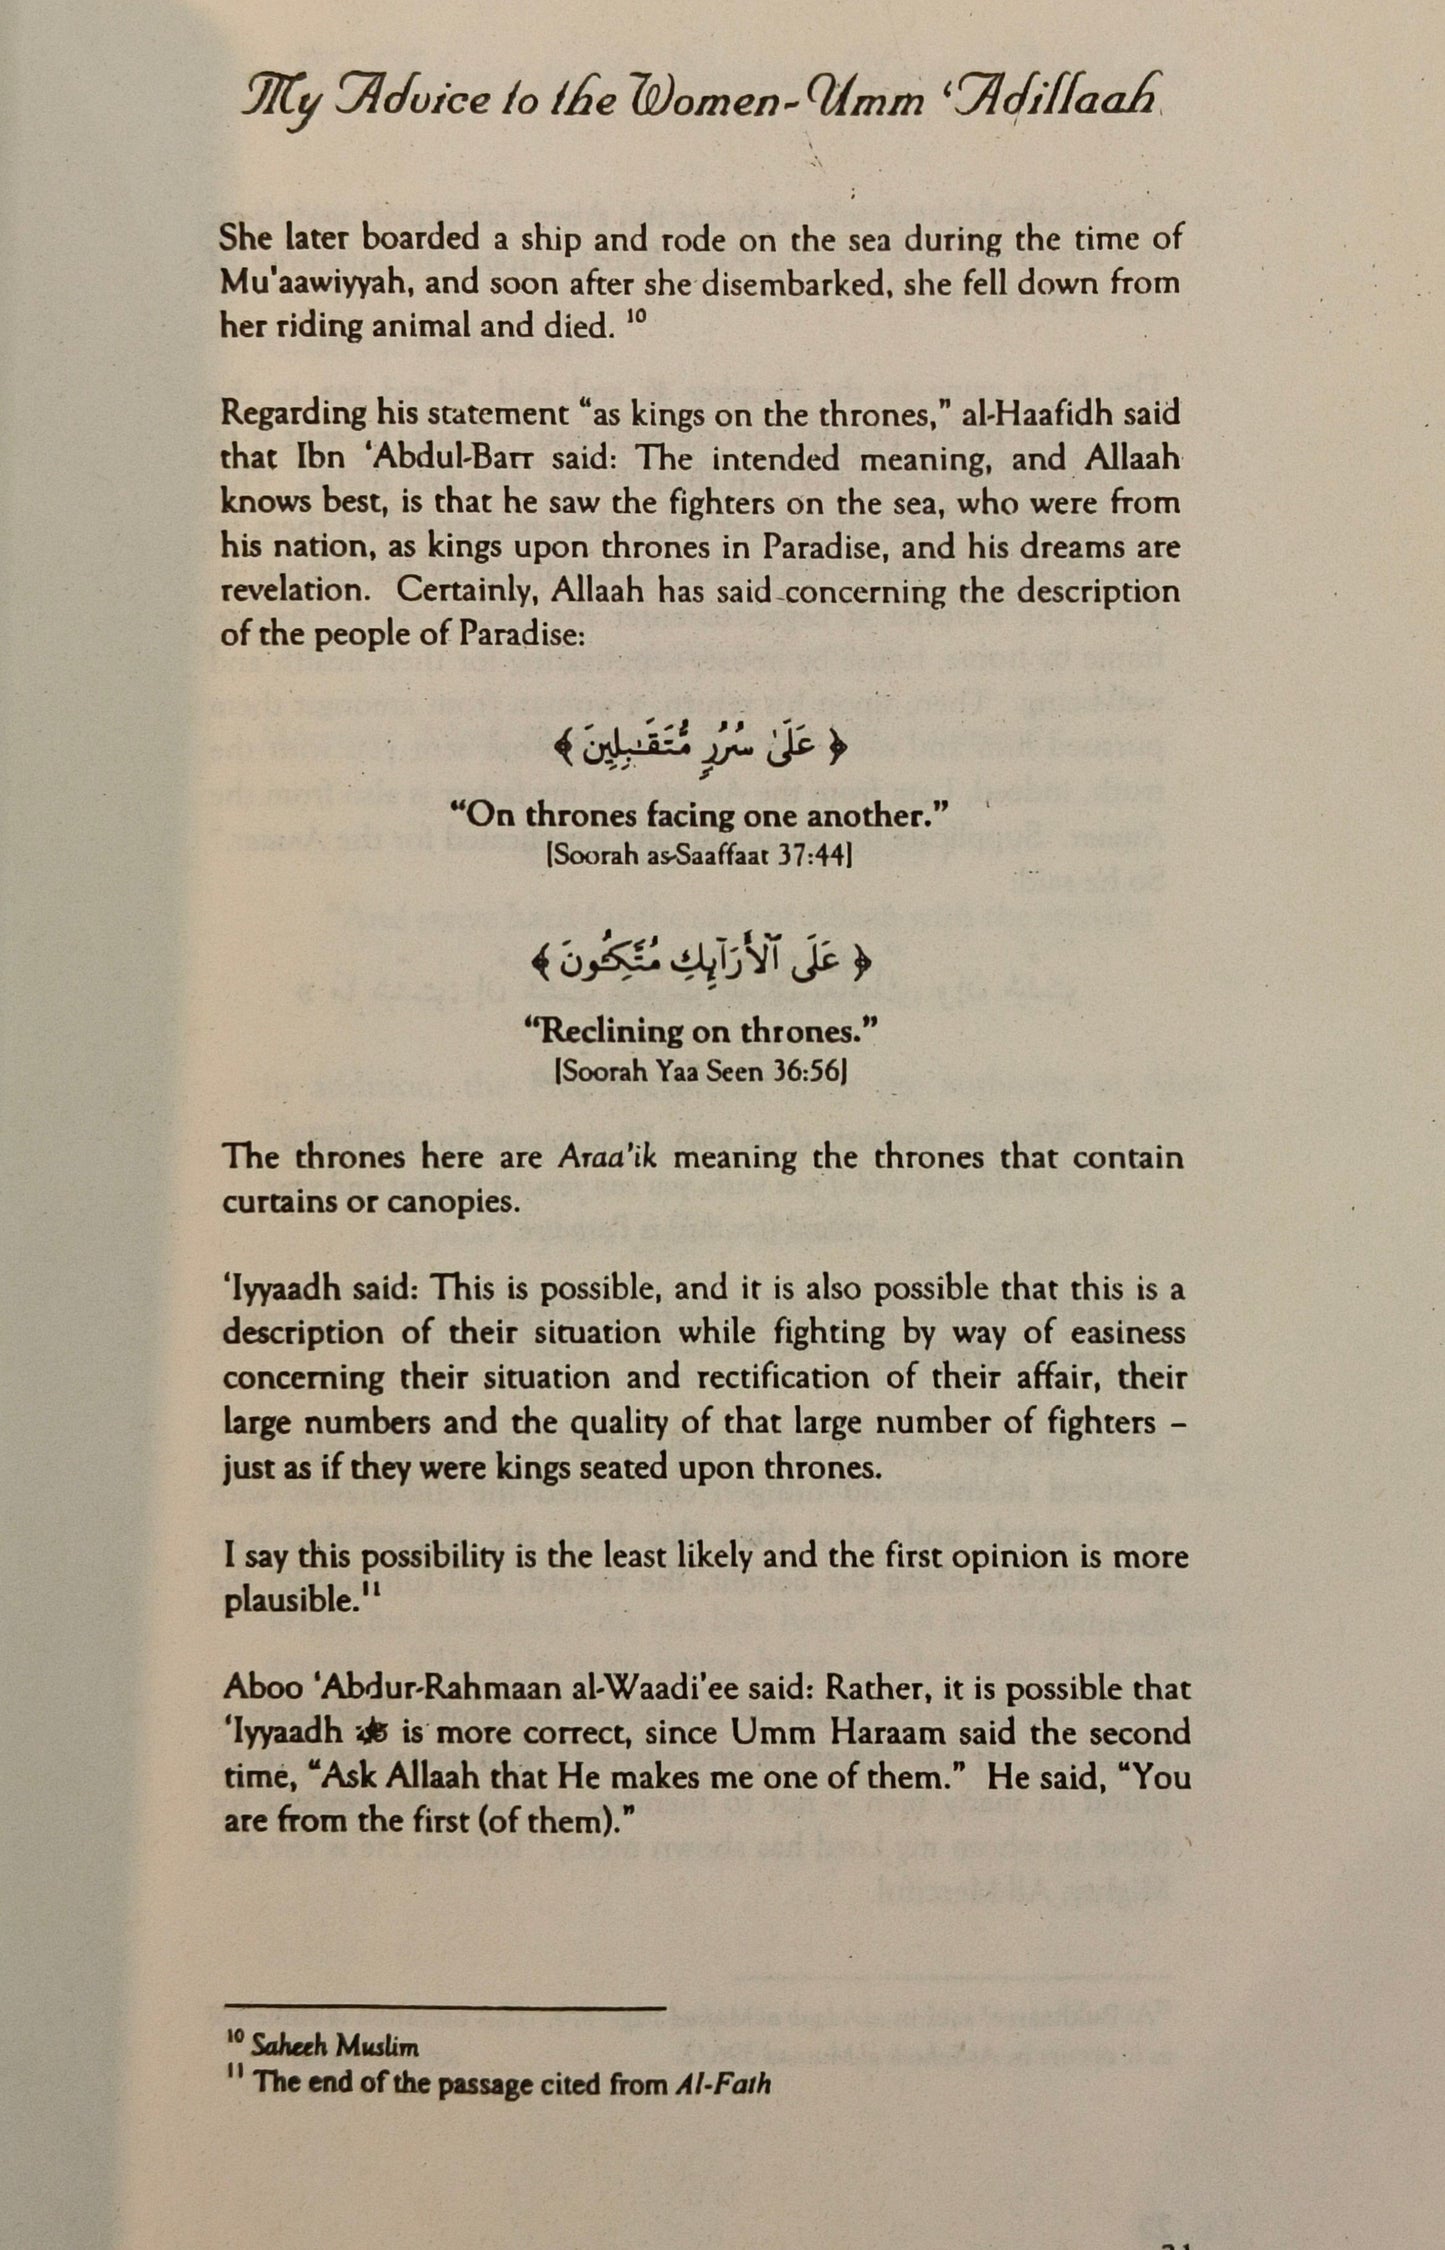 My Advice to the Women-Umm ‘Adillaah
She later boarded a ship and rode on the sea during the time of
Mu'aawiyyah, and soon after she disembarked, she fell down from
her riding animal and died. 10
Regarding his statement “as kings on the thrones,” al-Haafidh said
that Ibn ‘Abdul-Barr said: The intended meaning, and Allaah
knows best, is that he saw the fighters on the sea, who were from
his nation, as kings upon thrones in Paradise, and his dreams are
revelation. Certainly, Allaah has said concerning the description
of the people of Paradise:
﴿ عَلَىٰ سُرُرٍ مُّتَقَـٰبِلِينَ ﴾
“On thrones facing one another.”
[Soorah as-Saaffaat 37:44]
﴿ عَلَى ٱلْأَرَآئِكِ مُتَّكِـُٔونَ ﴾
“Reclining on thrones.”
[Soorah Yaa Seen 36:56]
The thrones here are Araa’ik meaning the thrones that contain
curtains or canopies.
‘Iyyaadh said: This is possible, and it is also possible that this is a
description of their situation while fighting by way of easiness
concerning their situation and rectification of their affair, their
large numbers and the quality of that large number of fighters –
just as if they were kings seated upon thrones.
I say this possibility is the least likely and the first opinion is more
plausible.11
Aboo ‘Abdur-Rahmaan al-Waadi’ee said: Rather, it is possible that
‘Iyyaadh is more correct, since Umm Haraam said the second
time, “Ask Allaah that He makes me one of them.” He said, “You
are from the first (of them).”
10 Saheeh Muslim
11 The end of the passage cited from Al-Fath